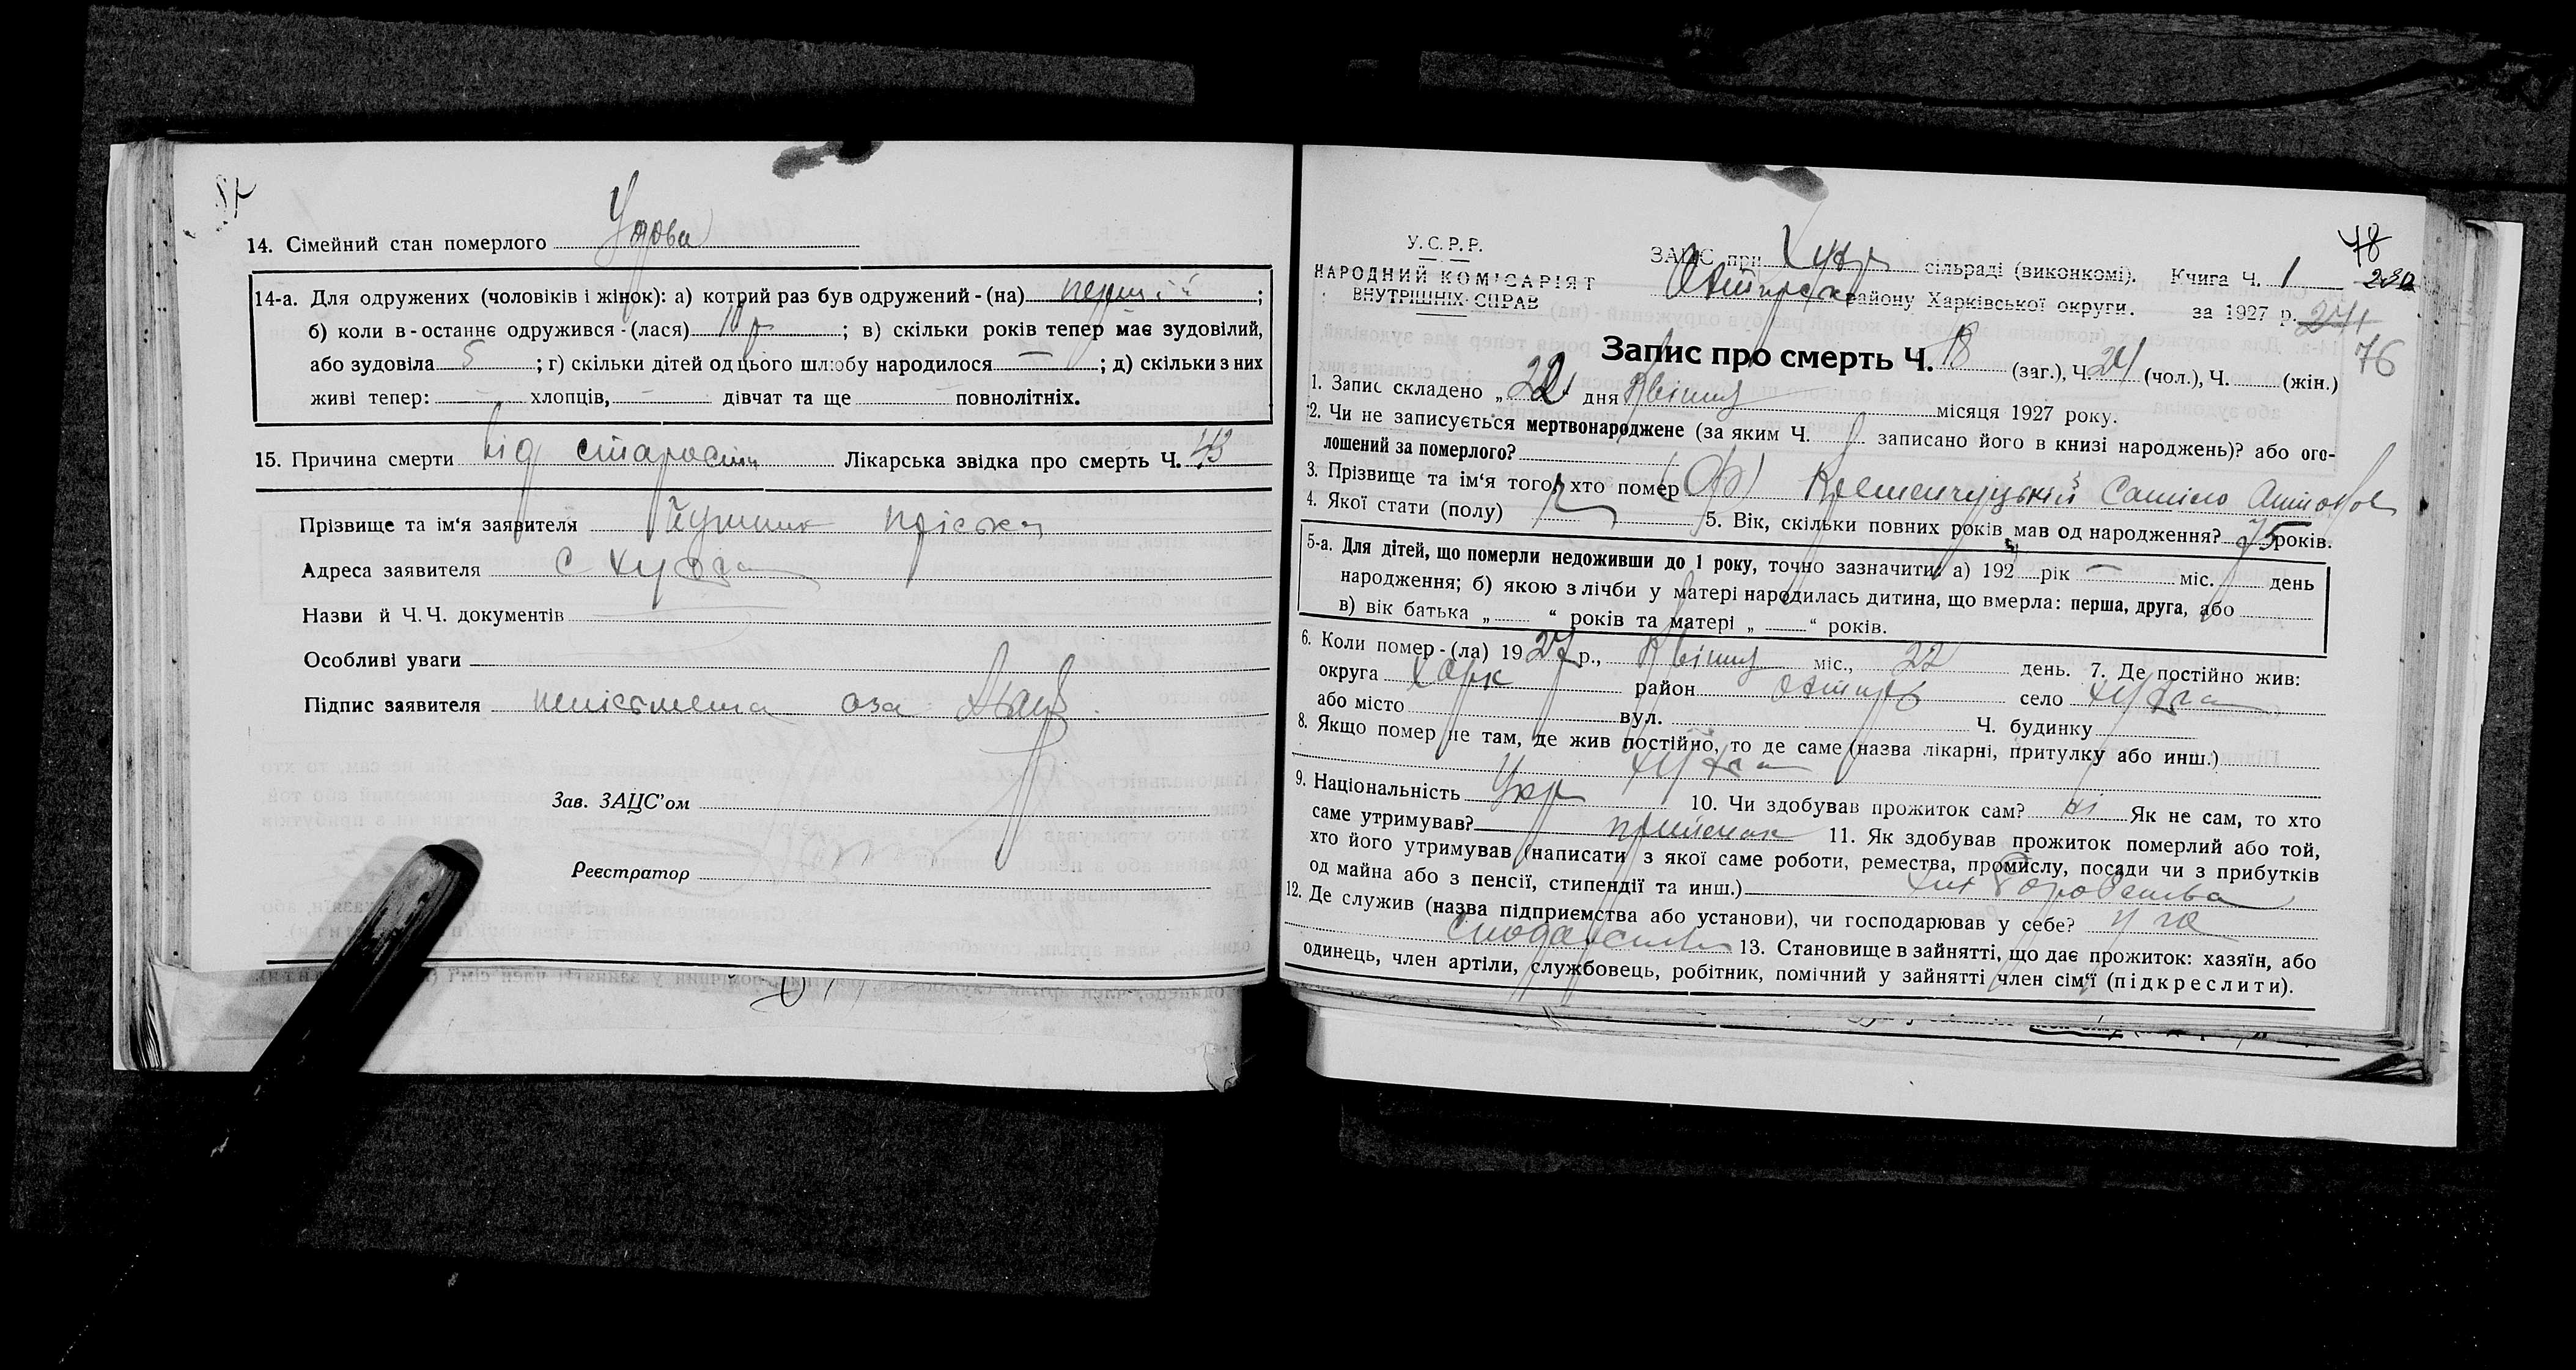 14. Сімейний стан померлого Удова
14-а. Для одружених (чоловіків і жінок): а) котрий раз був одружений - (на) перший ;
б) коли в-останнє одружився - (лася) 10 р ; в) скільки років тепер має зудовілий,
або зудовіла 5 ; г) скільки дітей од цього шлюбу народилося — ; д) скільки з них
живі тепер: — хлопців, — дівчат та ще повнолітніх.
15. Причина смерти від старости Лікарська звідка про смерть Ч. 43
Прізвище та ім'я заявителя Пріська
Адреса заявителя с
Назви й Ч.Ч. документів
Особливі уваги
Підпис заявителя неписьмена за
Зав. ЗАЦС'ом
Реєстратор
78
У.С.Р.Р.
НАРОДНИЙ КОМІСАРІЯТ
ВНУТРІШНІХ СПРАВ
ЗАЦС при сільраді (виконкомі). Книга Ч. 1 230
району Харківської округи. за 1927 р. 241
Запис про смерть Ч. 18 (заг.), Ч. 24 (чол.), Ч. (жін.) 76
1. Запис складено „22" дня Квітня місяця 1927 року.
2. Чи не записується мертвонароджене (за яким Ч. записано його в книзі народжень)? або ого-
лошений за померлого?
3. Прізвище та ім'я того, хто помер Кременчуцький
4. Якої стати (полу) Ч 5. Вік, скільки повних років мав од народження? 75 років.
5-а. Для дітей, що померли недоживши до 1 року, точно зазначити: а) 192 рік — міс. день
народження; б) якою з лічби у матері народилась дитина, що вмерла: перша, друга, або
в) вік батька „ " років та матері „ " років.
6. Коли помер - (ла) 1927 р., Квітня міс., 22 день. 7. Де постійно жив:
округа Харк район село
або місто вул. Ч. будинку
8. Якщо помер не там, де жив постійно, то де саме (назва лікарні, притулку або инш.)
9. Національність Укр 10. Чи здобував прожиток сам? ні Як не сам, то хто
саме утримував? 11. Як здобував прожиток померлий або той,
хто його утримував (написати з якої саме роботи, ремества, промислу, посади чи з прибутків
од майна або з пенсії, стипендії та инш.) хліборобства
12. Де служив (назва підприємства або установи), чи господарював у себе? у го
сподарстві 13. Становище в зайнятті, що дає прожиток: хазяїн, або
одинець, член артіли, службовець, робітник, помічний у зайнятті член сім'ї (підкреслити).